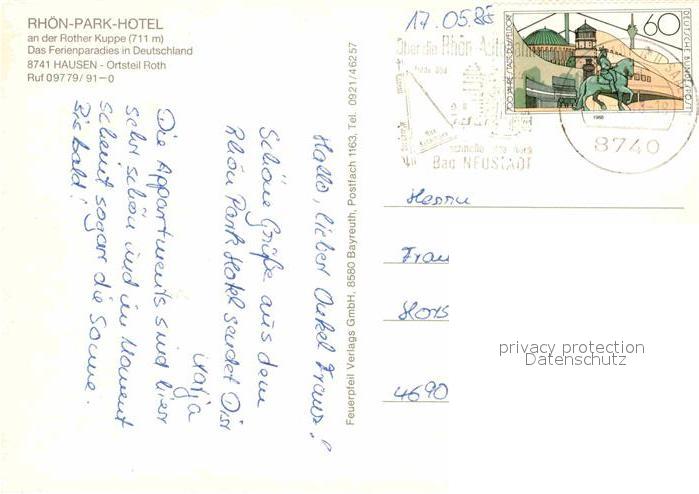 RHÖN-PARK-HOTEL
an der Rother Kuppe (711 m)
Das Ferienparadies in Deutschland
8741 HAUSEN - Ortsteil Roth
Ruf 09779/91-0
Hallo, lieber Onkel Franz!
Schöne Grüße aus dem
Rhön Park Hotel sendet Dir
Katja
Die Appartments sind hier
sehr schön und im Moment
scheint sogar die Sonne.
Bis bald!
Feuerpfeil Verlags GmbH, 8580 Bayreuth, Postfach 1163, Tel. 0921/46257
17.05.88
Über die Rhön-Autobahn
Bad NEUSTADT
700 JAHRE STADT DÜSSELDORF
60
DEUTSCHE BUNDESPOST
1988
8740
Herrn
Franz
Hors
4690
privacy protection
Datenschutz